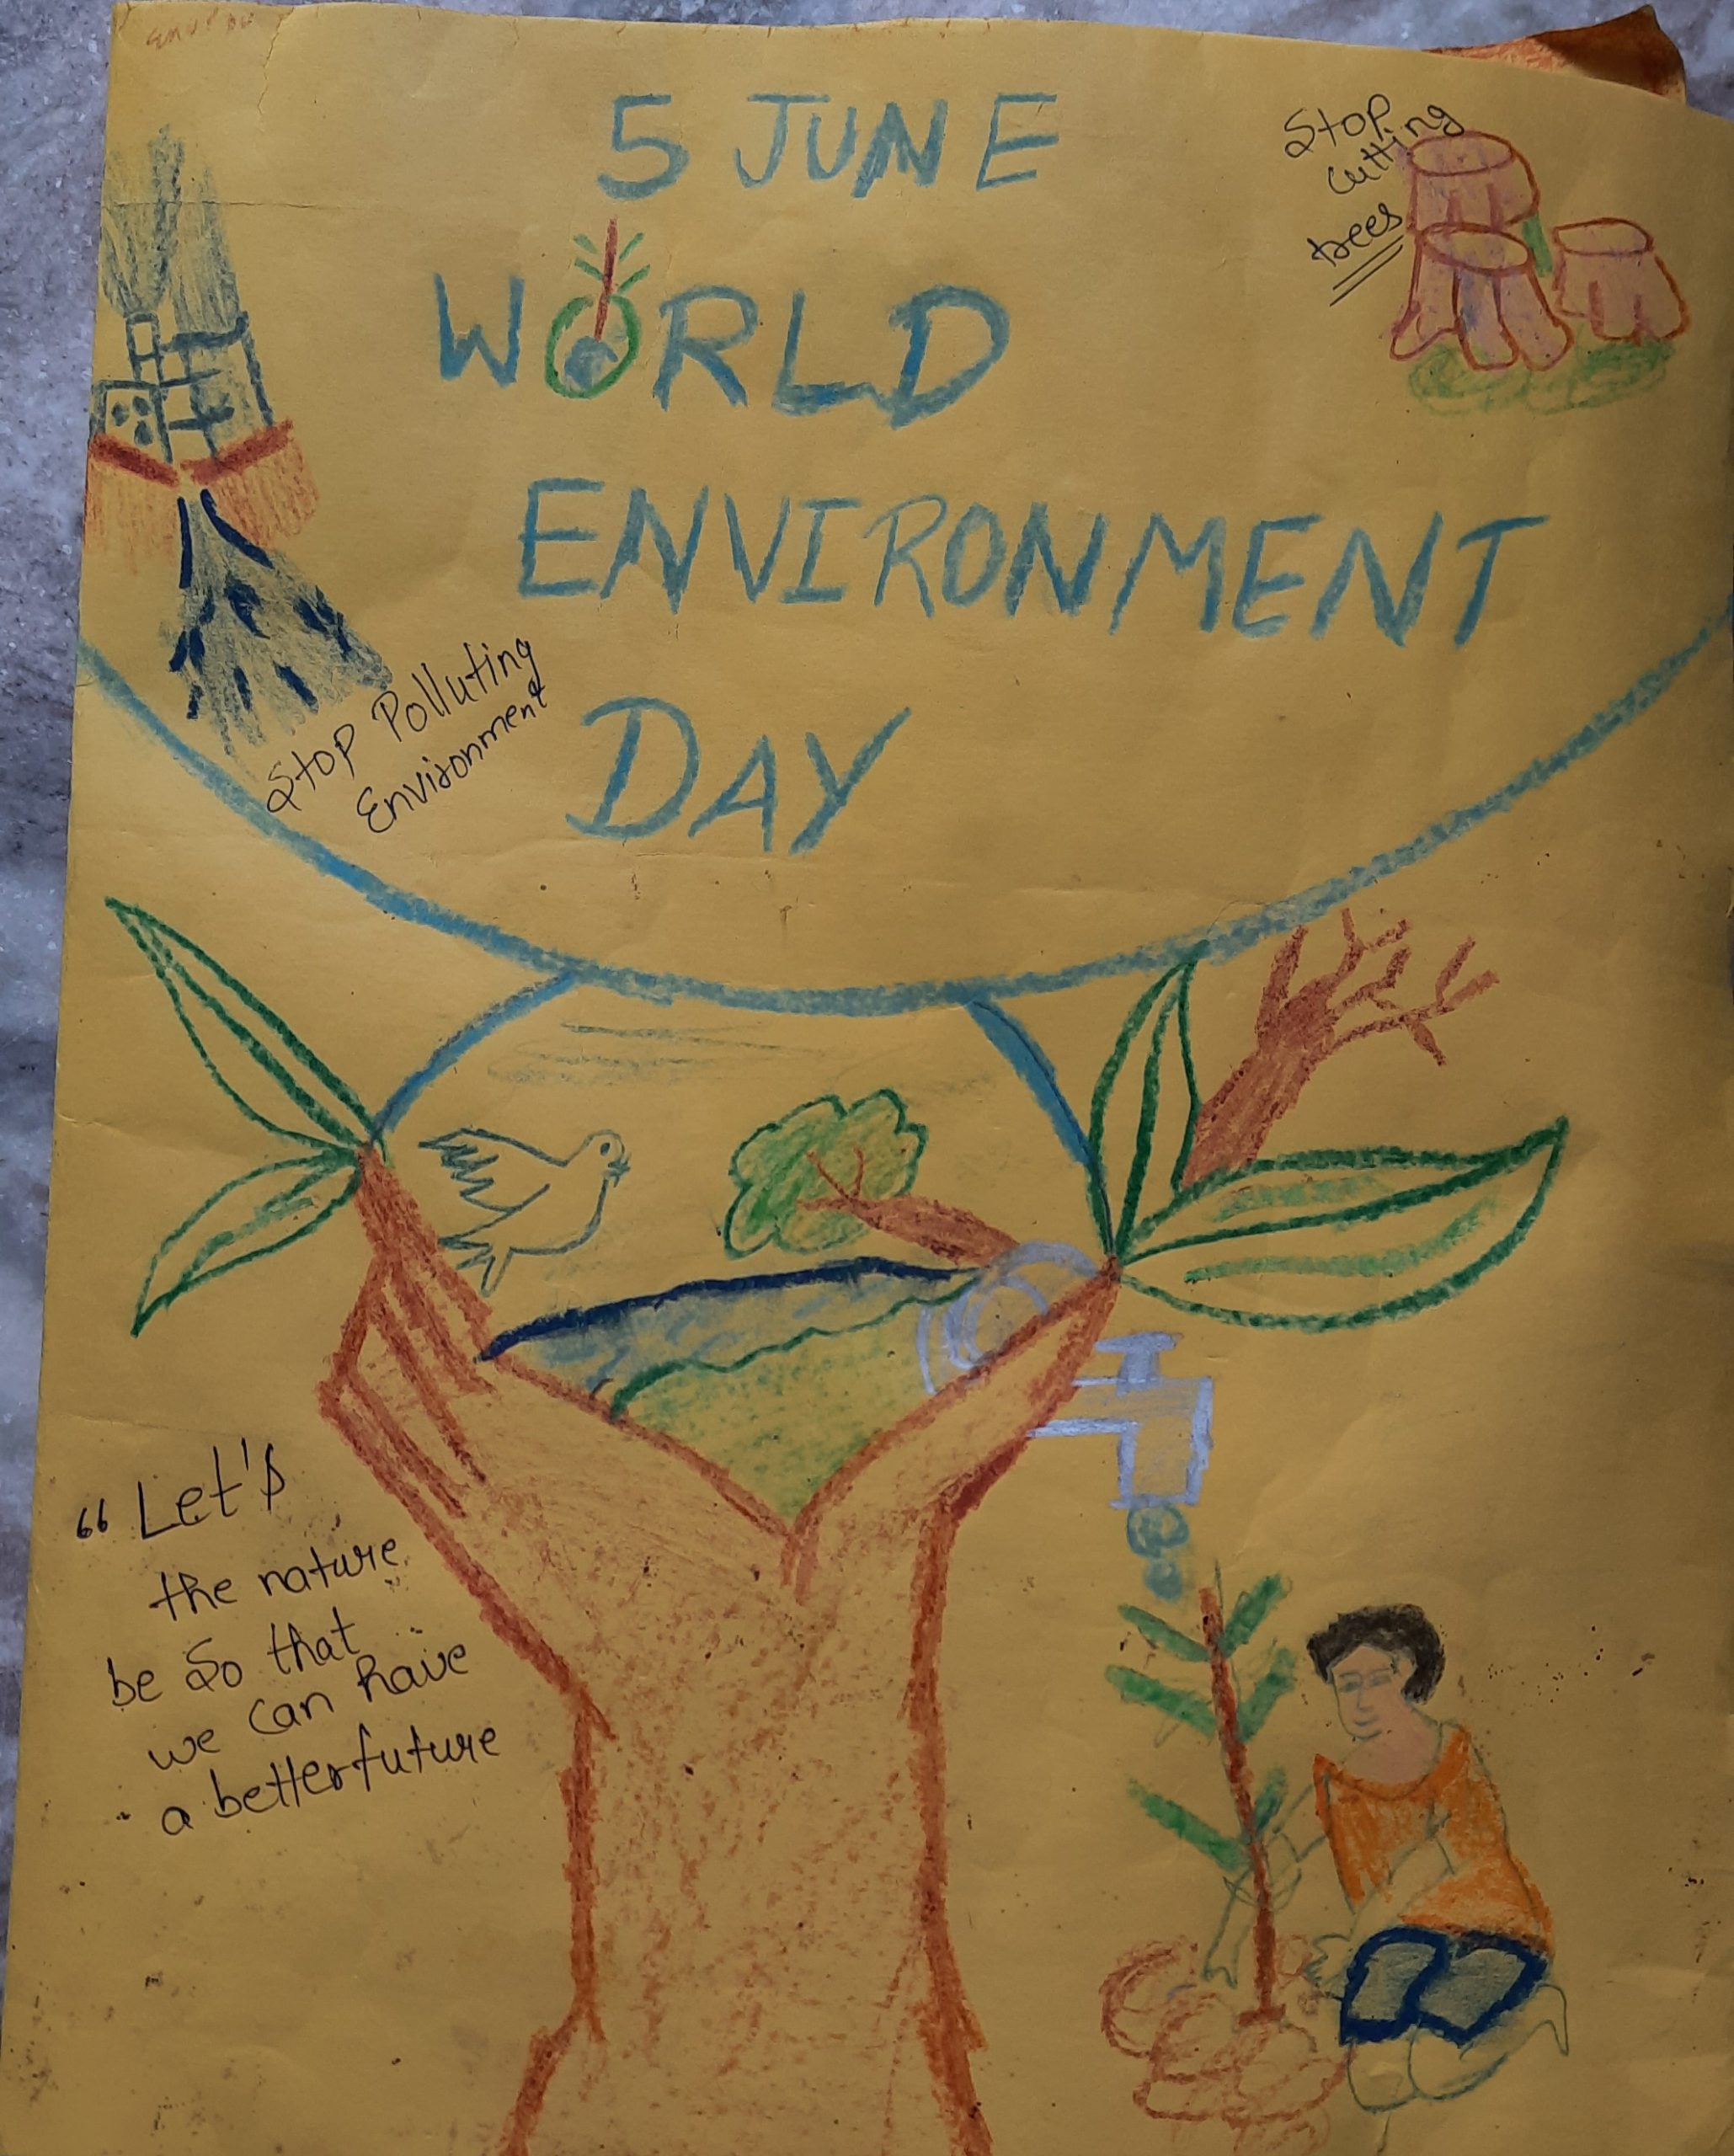 5 JUNE
WORLD
ENVIRONMENT
DAY
Stop
cutting
trees
Stop Polluting
Environment
“Let's
the nature
be so that
we can have
a better future